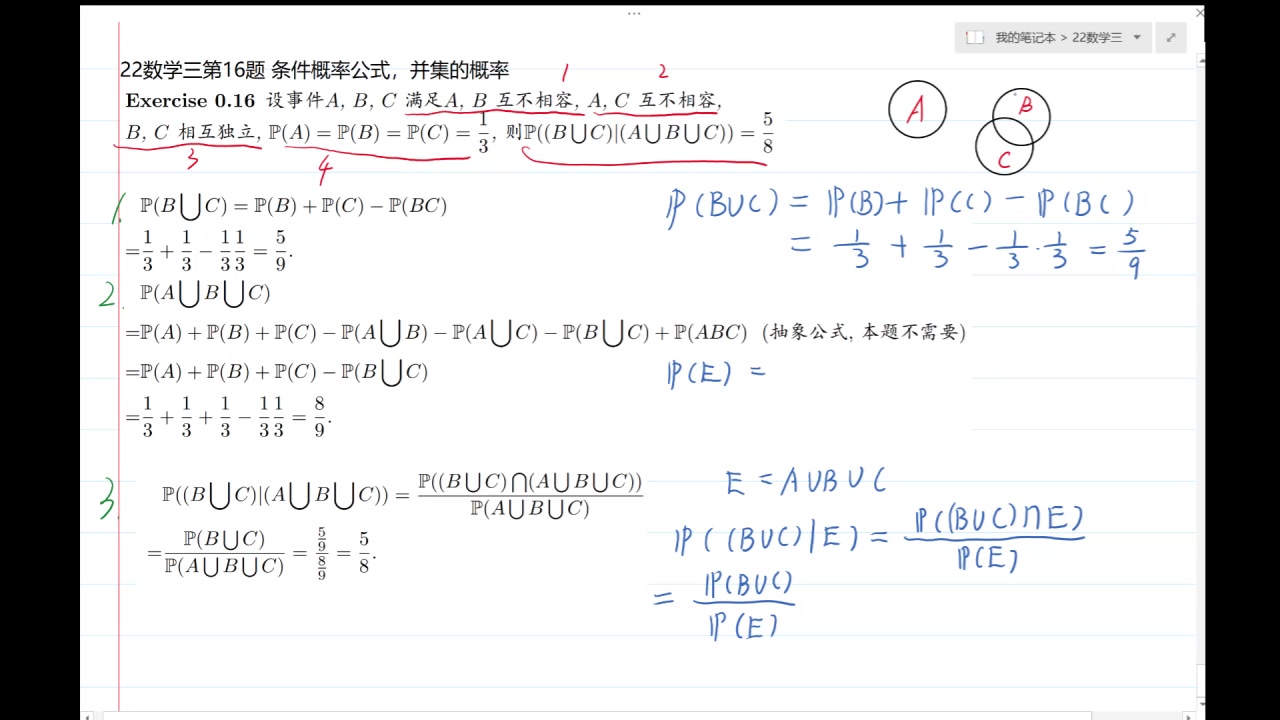 我的笔记本 > 22数学三
22数学三第16题 条件概率公式，并集的概率
1 2
Exercise 0.16 设事件A, B, C 满足A, B 互不相容, A, C 互不相容,
B, C 相互独立, ℙ(A) = ℙ(B) = ℙ(C) = 1/3, 则ℙ((B⋃C)|(A⋃B⋃C)) = 5/8
3 4
A B
C
1. ℙ(B⋃C) = ℙ(B) + ℙ(C) − ℙ(BC)
=1/3 + 1/3 − 1/3 1/3 = 5/9.
ℙ(B∪C) = ℙ(B) + ℙ(C) − ℙ(BC)
= 1/3 + 1/3 − 1/3 · 1/3 = 5/9
2. ℙ(A⋃B⋃C)
=ℙ(A) + ℙ(B) + ℙ(C) − ℙ(A⋃B) − ℙ(A⋃C) − ℙ(B⋃C) + ℙ(ABC) (抽象公式, 本题不需要)
=ℙ(A) + ℙ(B) + ℙ(C) − ℙ(B⋃C)
ℙ(E) =
=1/3 + 1/3 + 1/3 − 1/3 1/3 = 8/9.
3. ℙ((B⋃C)|(A⋃B⋃C)) = ℙ((B⋃C)⋂(A⋃B⋃C))/ℙ(A⋃B⋃C)
=ℙ(B⋃C)/ℙ(A⋃B⋃C) = (5/9)/(8/9) = 5/8.
E = A∪B∪C
ℙ((B∪C)|E) = ℙ((B∪C)∩E)/ℙ(E)
= ℙ(B∪C)/ℙ(E)